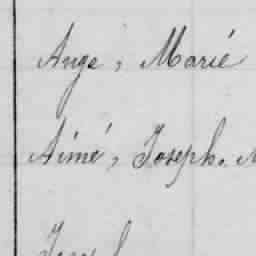 Ange, Marié
Aimé, Joseph.